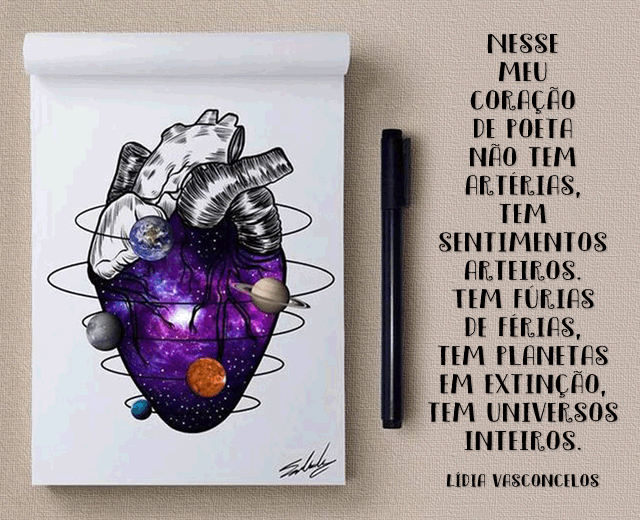 NESSE
MEU
CORAÇÃO
DE POETA
NÃO TEM
ARTÉRIAS,
TEM
SENTIMENTOS
ARTEIROS.
TEM FÚRIAS
DE FÉRIAS,
TEM PLANETAS
EM EXTINÇÃO,
TEM UNIVERSOS
INTEIROS.
LÍDIA VASCONCELOS